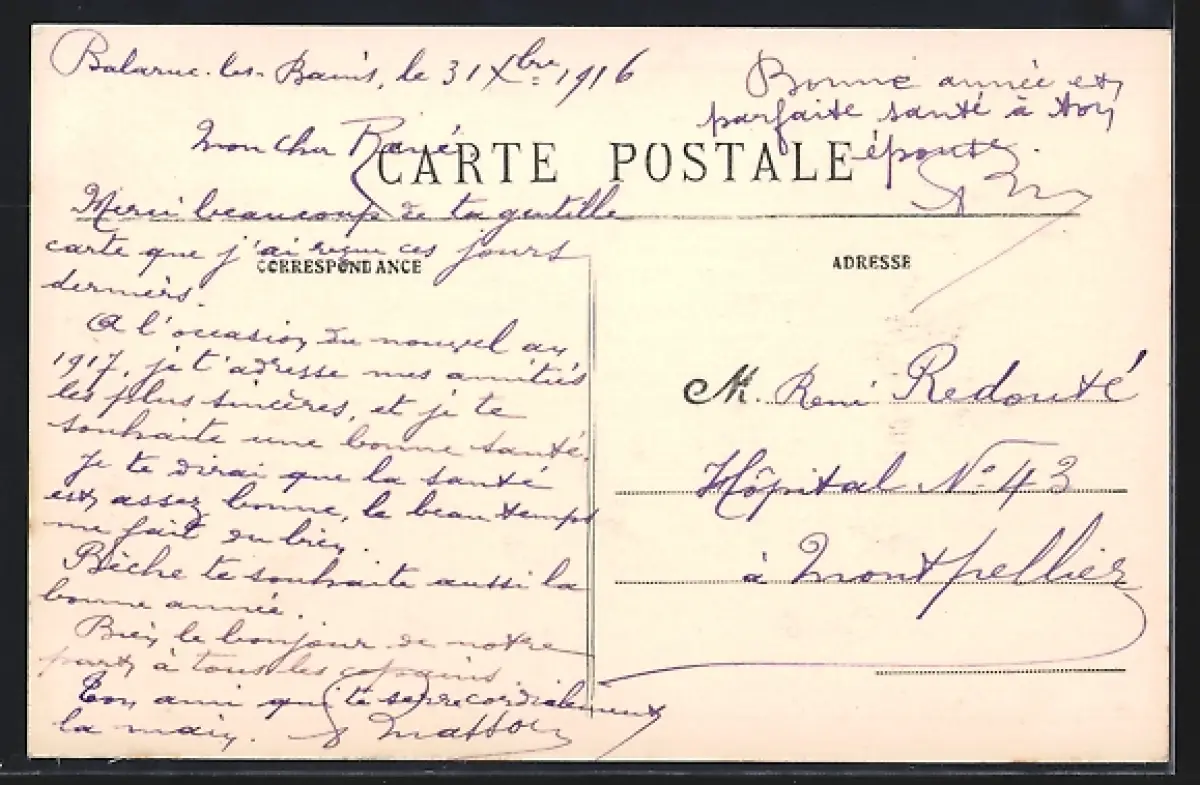 Balaruc-les-Bains, le 31 Xbre 1916
Bonne année et
parfaite santé à ton
épouse.
Mon cher René,
CARTE POSTALE
Merci beaucoup de ta gentille
carte que j'ai reçue ces jours
derniers.
CORRESPONDANCE
A l'occasion du nouvel an
1917, je t'adresse mes amitiés
les plus sincères, et je te
souhaite une bonne santé.
Je te dirai que la santé
est assez bonne, le beau temps
me fait du bien.
Biche te souhaite aussi la
bonne année.
Bien le bonjour de notre
part à tous les copains.
Ton ami qui te serre cordialement
la main.
ADRESSE
M. René Redouté
Hôpital No 43
à Montpellier